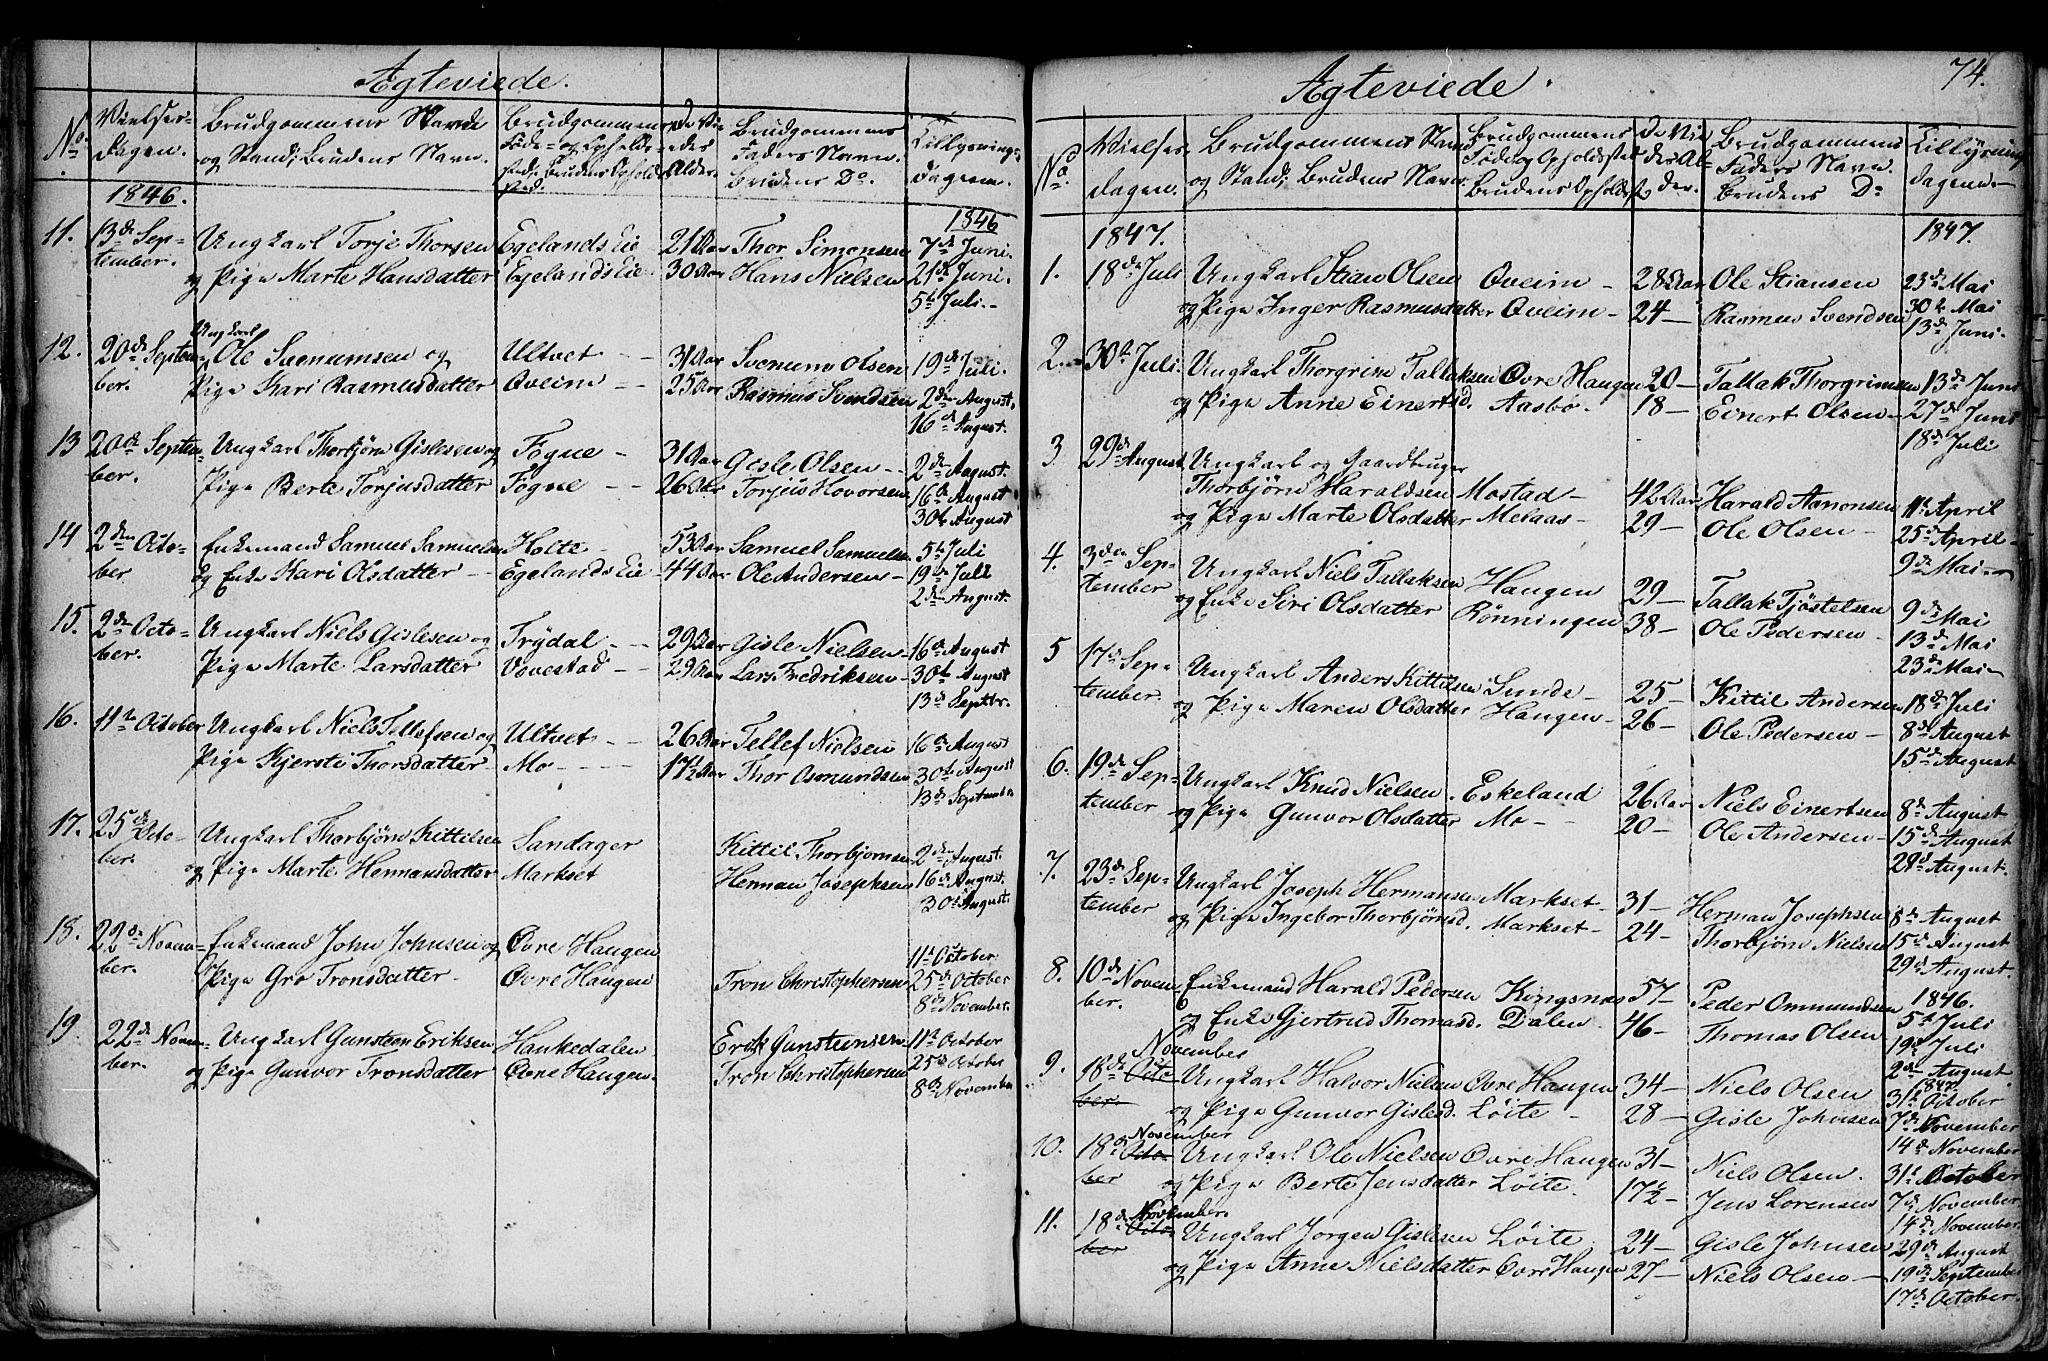 Agteviede.
No. Vielses-dagen. Brudgommens Navn og Stand; Brudens Navn. Brudgommens Föde- og Opholdssted; Brudens Opholdssted. De Viedes Alder. Brudgommens Faders Navn. Brudens Do. Tillysnings-dagene.
1846. 1846
11. 13de Sep- Ungkarl Torje Thorsen Egelands Eie 21 Aar Thor Simonsen 7de Juni.
tember. og Pige Marte Hansdatter Egelands Eie 30 Aar Hans Nielsen 21de Juni.
5te Juli.
Ungkarl
12. 20de Septem- Ole Ultvet 31 Aar Olsen 19de Juli.
ber. Pige Kari Rasmusdatter Oveim 25 Aar Rasmus Svendsen 2den August.
16de August.
13 20de Septem- Ungkarl Thorbjörn Gislesen og Fogne 31 Aar Gisle Olsen 2den August.
ber. Pige Berte Torjusdatter Fogne 26 Aar Torjus Hovorsen 16de August
30te August
14 2den Octo- Enkemand Samuel Samuelsen Holte 53 Aar Samuel Samuelsen 5te Juli
ber og Enke Kari Olsdatter Egelands Eie 44 Aar Ole Andersen 19de Juli
2den August.
15. 2den Octo- Ungkarl Niels Gislesen og Trydal 29 Aar Gisle Nielsen 16de August
ber. Pige Marte Larsdatter Vovestad 29 Aar Lars Fredriksen 30te August
13de Septbr.
16. 11te October Ungkarl Niels Tellefsen og Ultvet 26 Aar Tellef Nielsen 16de August
Pige Kjersti Thorsdatter Mo 17½ Aar Thor Osmundsen 30te August
13de September
17. 25de Octo- Ungkarl Thorbjörn Kittilsen Sandager Kittil Thorbjornsen 2den August.
ber. og Pige Marte Hermansdatter Markset Herman Josephsen 16de August.
30te August.
18. 22de Novem- Enkemand John Johnsen og Övre Haugen 11te October
ber. Pige Gro Tronsdatter Övre Haugen Tron Christophersen 25de October
8de November.
19. 22de Novem- Ungkarl Gunsten Eriksen Haukedalen Erik Gunstensen 11te October
ber. og Pige Gunvor Tronsdatter Övre Haugen. Tron Christophersen 25de October
8de November
74.
Agteviede.
No. Vielses-dagen. Brudgommens Navn og Stand; Brudens Navn. Brudgommens Föde og Opholdsted Brudens Opholdsted De Viedes Alder. Brudgommens Faders Navn. Brudens Do Tillysningsdagene.
1847. 1847.
1. 18de Juli Ungkarl Stian Olsen Oveim 28 Aar Ole Stiansen 23de Mai
og Pige Inger Rasmusdatter Oveim 24 Rasmus Svendsen 30te Mai
13de Juni.
2. 30te Juli. Ungkarl Thorgrim Tallaksen Övre Haugen 20 Tallak Thorgrimsen 13de Juni
og Pige Anne Einertsd. Aasbö. 18 Einert Olsen 27de Juni
18de Juli
3. 29de August Ungkarl og Gaardbruger
Thorbjörn Haraldsen Mostad 42 Aar Harald Aanonsen 11te April
og Pige Marte Olsdatter Melaas 29 Ole Olsen 25de April
9de Mai
4. 3die Sep- Ungkarl Niels Tallaksen Haugen 29 Tallak Tjöstelsen 9de Mai
tember og Enke Siri Olsdatter Rönningen 38 Ole Pedersen 13de Mai
23de Mai
5 17de Sep- Ungkarl Anders Kittilsen Sunde 25 Kittil Andersen 18de Juli
tember. og Pige Maren Olsdatter Haugen 26 Ole Pedersen 8de August
15de August
6. 19de Sep- Ungkarl Knud Nielsen. Eskeland 26 Aar Niels Einertsen 8de August
tember og Pige Gunvor Olsdatter Mo 20 Ole Andersen 15de August
29de August.
7. 23de Sep- Ungkarl Joseph Hermansen Markset 31 Herman Josephsen 8de August
tember og Pige Ingebor Thorbjörnsd. Markset 24 Thorbjörn Nielsen 15de August
29de August.
8. 10de Novem- Enkemand Harald Pedersen Kongsnæs 57 Peder Ommundsen 1846.
ber. og Enke Gjertrud Thomasd. Dalen 46 Thomas Olsen 5te Juli
19de Juli
November 2den August.
9. 18de Octo- Ungkarl Halvor Nielsen Övre Haugen 34 Niels Olsen 1847 31te October
ber. og Pige Gunvor Gislesd. Löite 28 Gisle Johnsen 7de November
November 14de November
10. 18de Octo- Ungkarl Ole Nielsen Övre Haugen 31 Niels Olsen. 31te October
ber og Pige Berte Jensdatter Löite. 17½ Jens Lorensen 7de November
November. 14de November
11. 18de Octo- Ungkarl Jorgen Gislesen Löite 24 Gisle Johnsen 29de August
ber og Pige Anne Nielsdatter Övre Haugen 27 Niels Olsen 19de September
17de October.